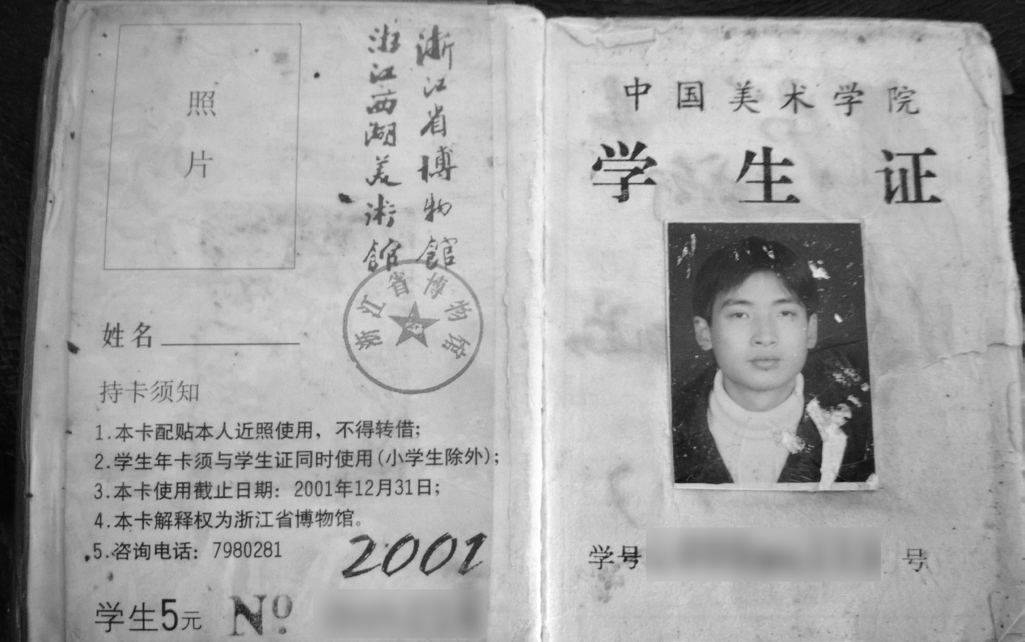 照
片
浙江省博物館
浙江西湖美術館
浙江省博物馆
姓名
持卡须知
1.本卡配贴本人近照使用，不得转借；
2.学生年卡须与学生证同时使用(小学生除外)；
3.本卡使用截止日期：2001年12月31日；
4.本卡解释权为浙江省博物馆。
5.咨询电话：7980281
2001
学生5元 Nº
中国美术学院
学生证
学号 号